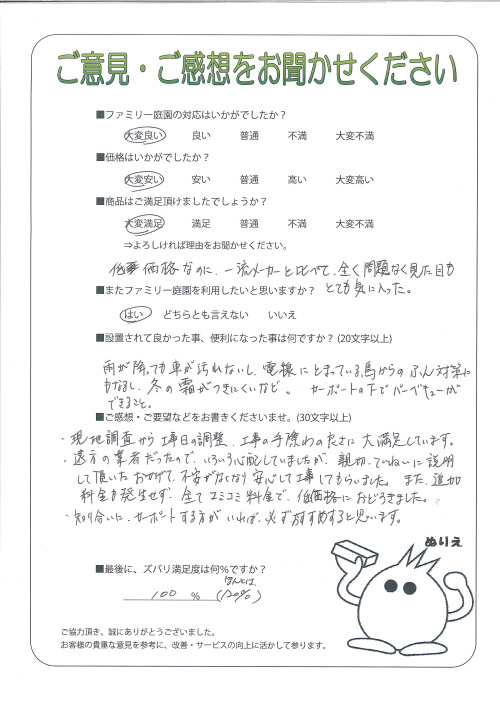 ご意見・ご感想をお聞かせください
■ファミリー庭園の対応はいかがでしたか？
大変良い 良い 普通 不満 大変不満
■価格はいかがでしたか？
大変安い 安い 普通 高い 大変高い
■商品はご満足頂けましたでしょうか？
大変満足 満足 普通 不満 大変不満
⇒よろしければ理由をお聞かせください。
価格なのに、一流メーカーと比べて、全く問題なく見た目も
とても気に入った。
■またファミリー庭園を利用したいと思いますか？
はい どちらとも言えない いいえ
■設置されて良かった事、便利になった事は何ですか？(20文字以上)
雨が降っても車が汚れないし、電線にとまっている鳥からのふん対策に
もなるし、冬の霜がつきにくいなど。 カーポートの下でバーベキューが
できること。
■ご感想・ご要望などをお書きくださいませ。(30文字以上)
・現地調査から工事日の調整、工事の手際のよさに大満足しています。
・遠方の業者だったので、いろいろ心配していましたが、親切、ていねいに説明
して頂いたおかげで、不安がなくなり安心して工事してもらいました。また、追加
料金も発生せず、全てコミコミ料金で、低価格におどろきました。
・知り合いに、カーポートする方がいれば、必ずおすすめすると思います。
ぬりえ
■最後に、ズバリ満足度は何％ですか？
ほんとは
100 ％ (120%)
ご協力頂き、誠にありがとうございました。
お客様の貴重な意見を参考に、改善・サービスの向上に活かして参ります。